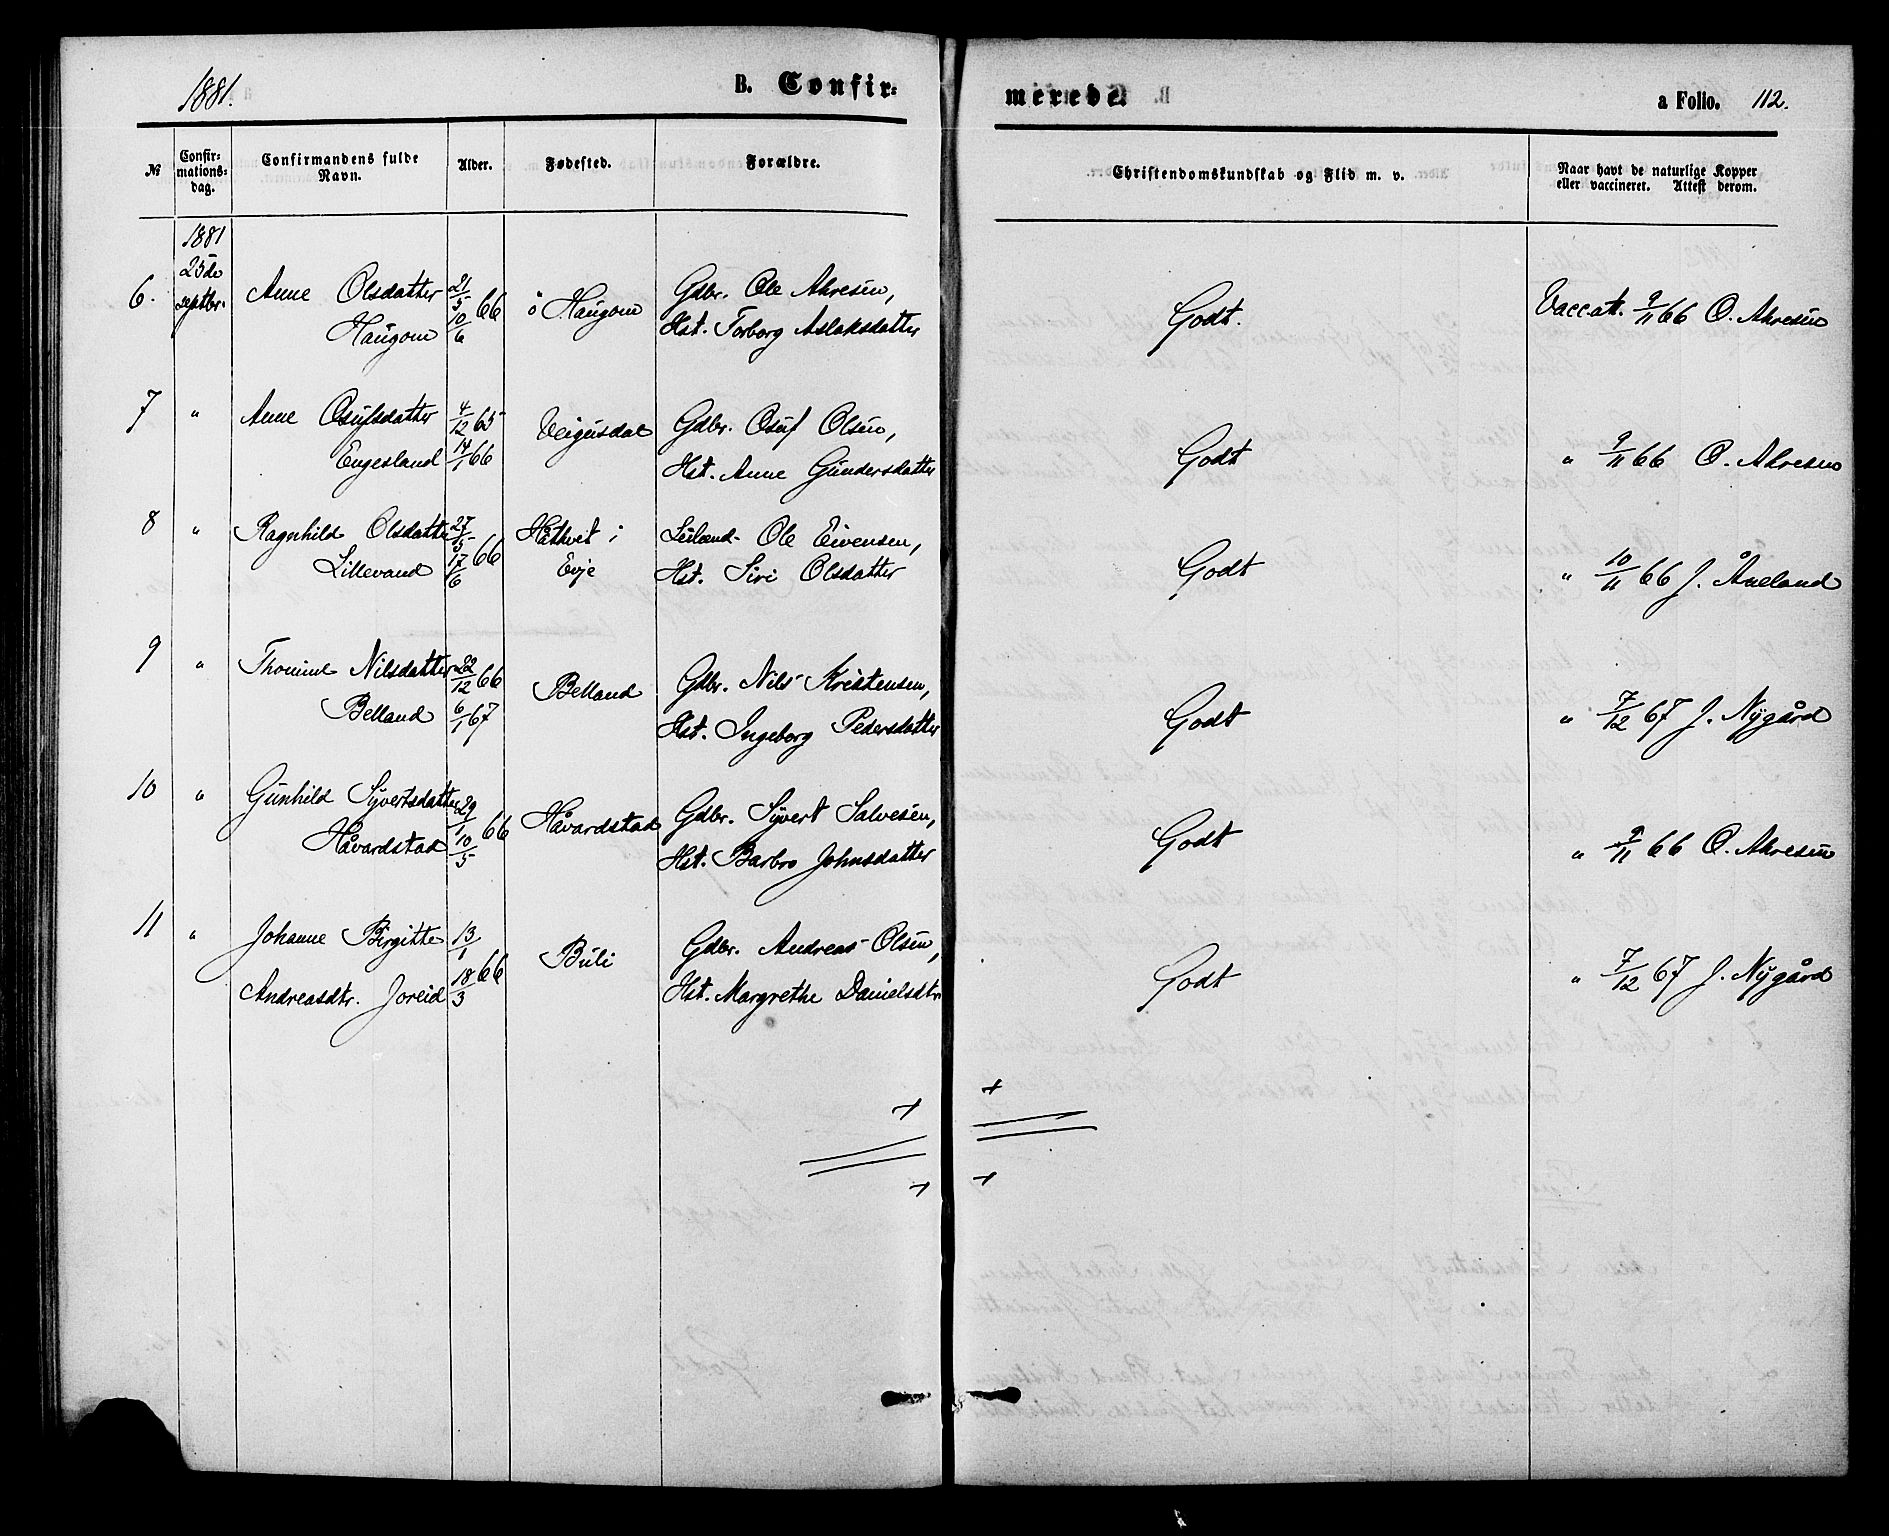 1881.
B. Confir=
merede.
a Folio. 112.
№ Confir=mations=dag. Confirmandens fulde Navn. Alder. Fødested. Forældre. Christendomskundskab og Flid m. v. Naar havt de naturlige Kopper eller vaccineret. Attest derom.
1881
25de
6. septbr. Anne Olsdatter 21/5 66 ö Haugom Gdbr. Ole Akresen, Godt. Vaccatt. 9/11 66 O. Akresen
Haugom 10/6 Hst. Torborg Aslaksdatter
7 " Anne Osufsdatter 4/12 65 Veigusdal Gdbr. Osuf Olsen, Godt " 9/11 66 O. Akresen
Engesland 14/1 66 Hst. Anne Gundersdatter
8 " Ragnhild Olsdatter 27/5 66 Håthvet i Leilænd. Ole Eivensen, Godt " 10/11 66 J. Åneland
Lillevand 17/6 Evje Hst. Siri Olsdatter
9 " Thomine Nilsdatter 22/12 66 Belland Gdbr. Nils Kristensen, Godt " 7/12 67 J. Nygård
Belland 6/1 67 Hst. Ingeborg Pedersdatter
10 " Gunhild Syvertsdatter 29/1 66 Håvardstad Gdbr. Syvert Salvesen, Godt " 9/11 66 O. Akresen
Håvardstad 10/5 Hst. Barbro Johnsdatter
11 " Johanne Birgitte 13/1 66 Buli Gdbr. Andreas Olsen, Godt " 7/12 67 J. Nygård
Andreasdtr. Joreid 18/3 Hst. Margrethe Danielsdtr